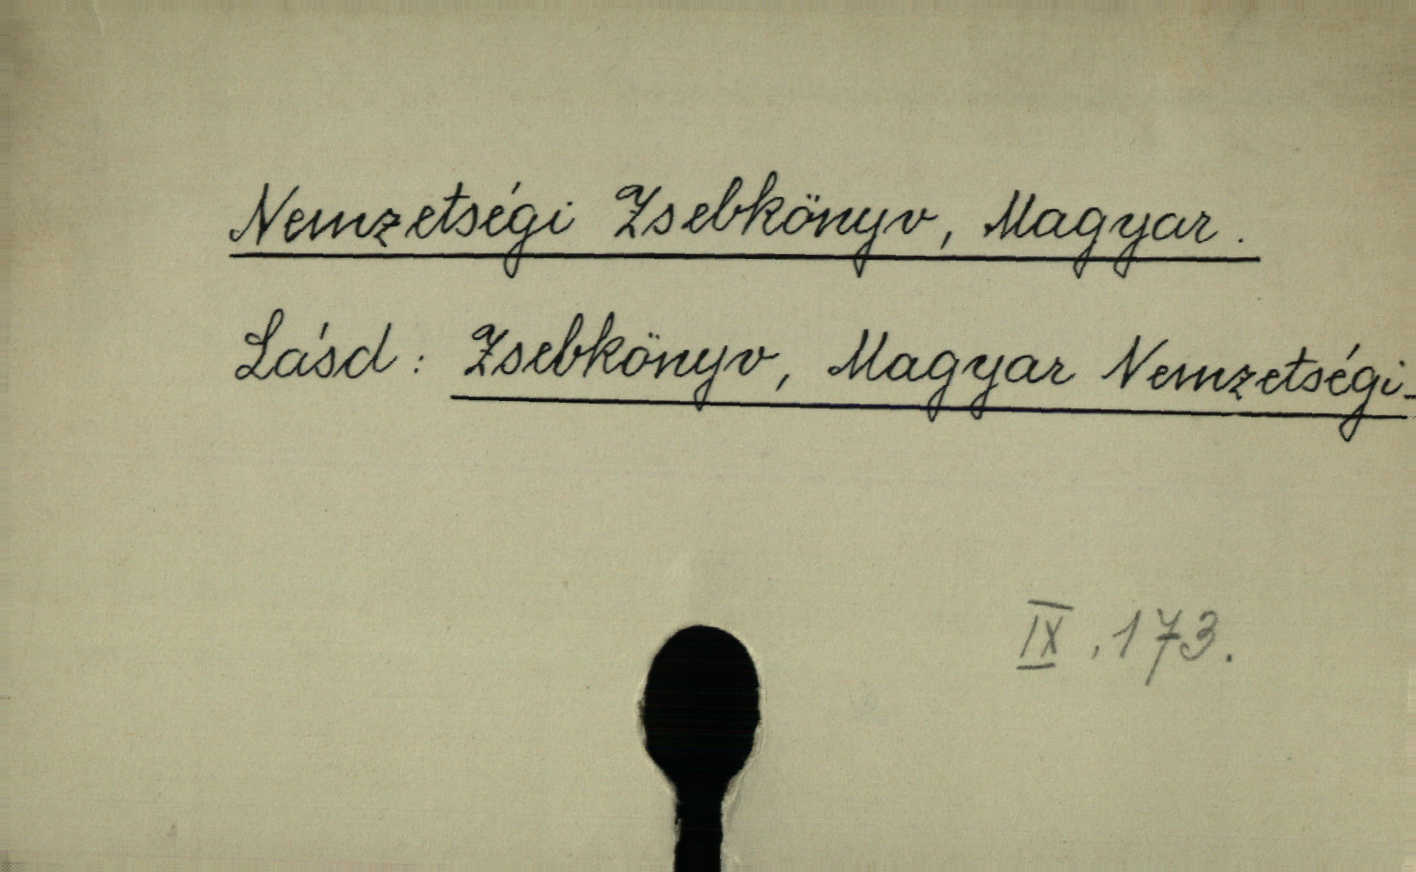 Nemzetségi Zsebkönyv, Magyar.
Lásd: Zsebkönyv, Magyar Nemzetségi-
IX, 173.